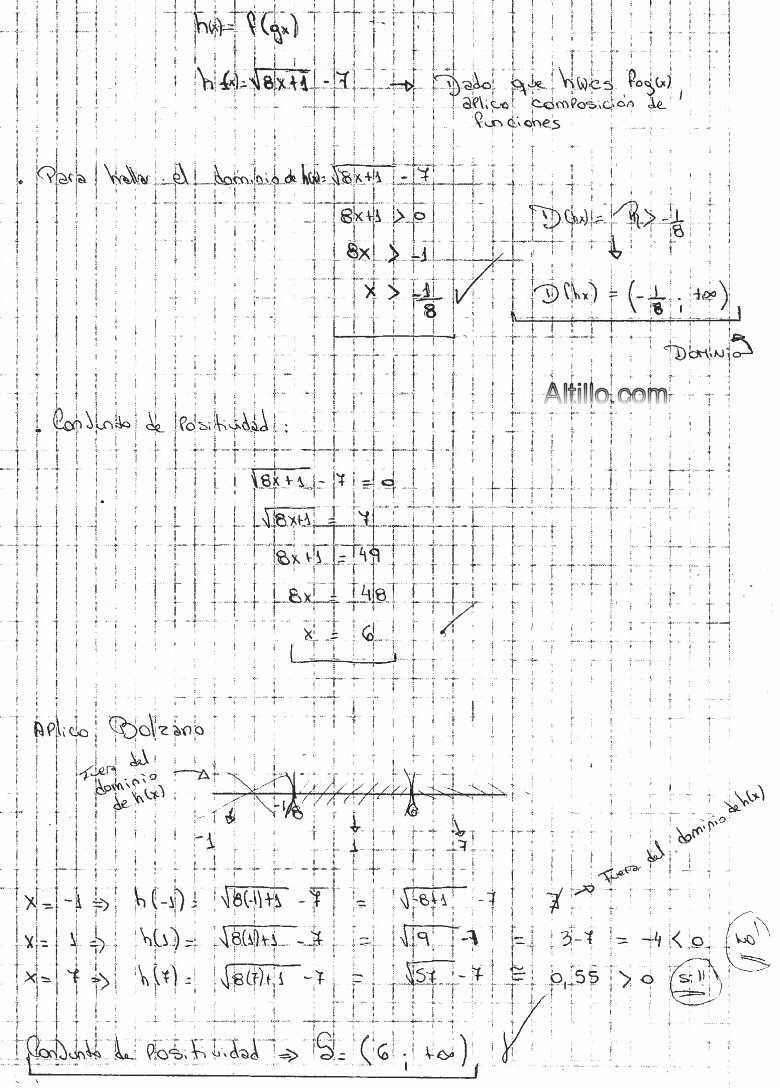 h(x) = f(gx)
h(x) = √8x+1 - 7 → Dado que h(x) es fog(x),
aplico composición de
funciones
. Para hallar el dominio de h(x) = √8x+1 - 7
8x+1 > 0
8x > -1
x > -1/8
D(hx) = R > -1/8
↓
D(hx) = (-1/8 ; +∞)
Dominio
Altillo.com
. Conjunto de Positividad :
√8x+1 - 7 = 0
√8x+1 = 7
8x+1 = 49
8x = 48
x = 6
Aplico Bolzano
Fuera del
dominio
de h(x)
-1/8 6
-1 1 7
x = -1 ⇒ h(-1) = √8(-1)+1 - 7 = √-8+1 - 7 ∄ → Fuera del dominio de h(x)
x = 1 ⇒ h(1) = √8(1)+1 - 7 = √9 - 7 = 3-7 = -4 < 0 no!!
x = 7 ⇒ h(7) = √8(7)+1 - 7 = √57 - 7 ≅ 0,55 > 0 si!!
Conjunto de Positividad ⇒ S = (6 ; +∞)